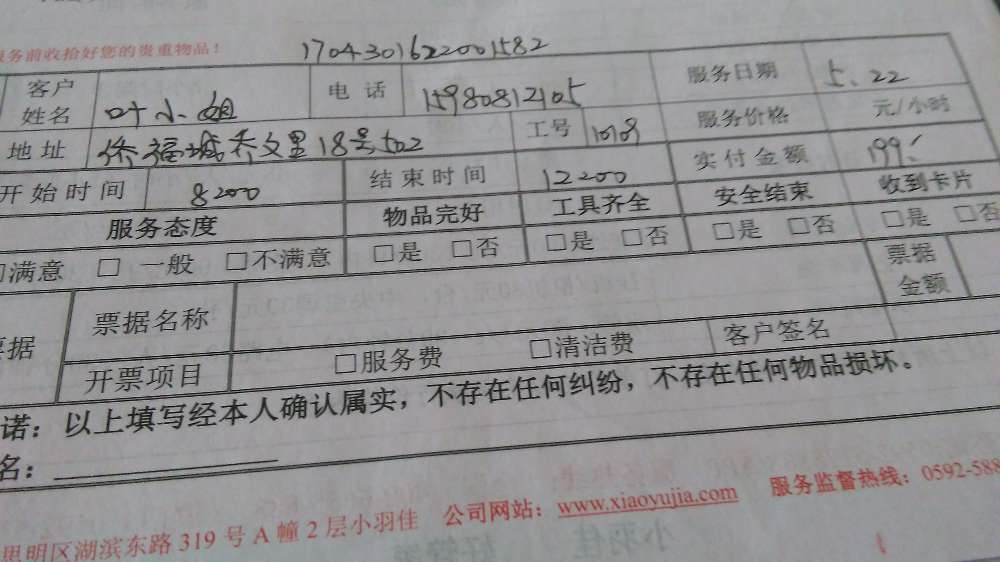 务前收拾好您的贵重物品！ 1704301622001582
客户姓名 叶小姐 电话 15980812105 服务日期 5.22
地址 侨福城乔文里18号502 工号 1019 服务价格 元/小时
开始时间 8:00 结束时间 12:00 实付金额 199.
服务态度 物品完好 工具齐全 安全结束 收到卡片
□满意 □一般 □不满意 □是 □否 □是 □否 □是 □否 □是 □否
票据 票据名称 票据金额
开票项目 □服务费 □清洁费 客户签名
诺：以上填写经本人确认属实，不存在任何纠纷，不存在任何物品损坏。
名：
思明区湖滨东路 319 号 A 幢 2 层小羽佳 公司网站：www.xiaoyujia.com 服务监督热线：0592-588